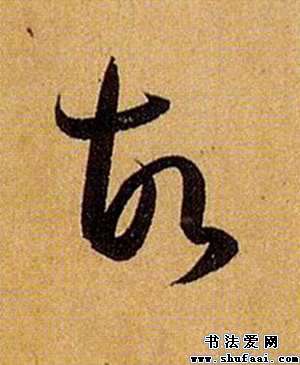 故
书法爱网
www.shufaai.com